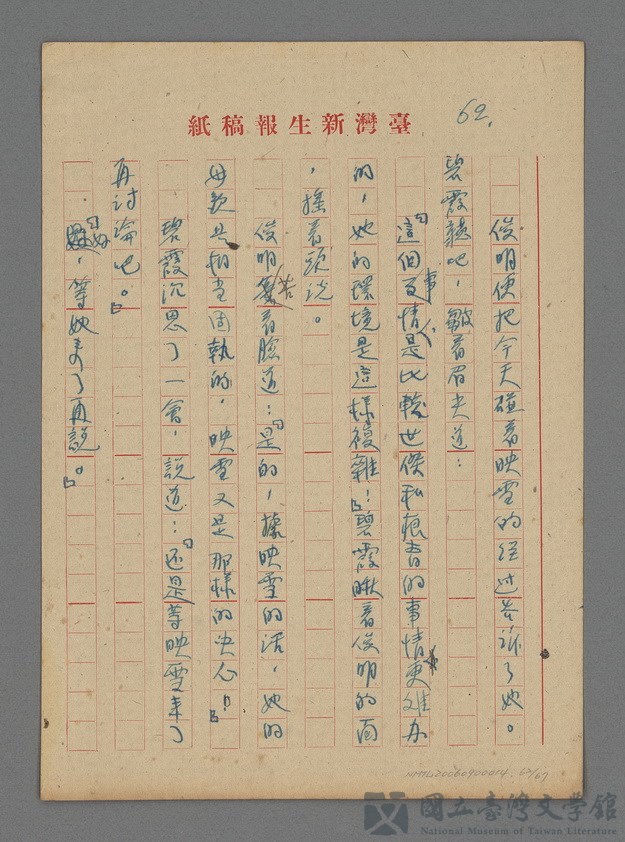 臺灣新生報稿紙
62.
俊明便把今天碰着映雪的经过告訴了她。
碧霞聽吧，皺着眉尖道：
「這個事情是比較世傑和痕香的事情更难办
的，她的環境是這樣複雜！」碧霞瞅着俊明的面
，搖着頭說。
俊明苦着臉道：「是的，據映雪的话，她的
母親是相当固執的，映雪又是那樣的决心！」
碧霞沉思了一會，説道：「还是等映雪来了
再讨論吧。」
「好，等她来了再説。」
NMTL20060900014. 62/67
國立臺灣文學館
National Museum of Taiwan Literature